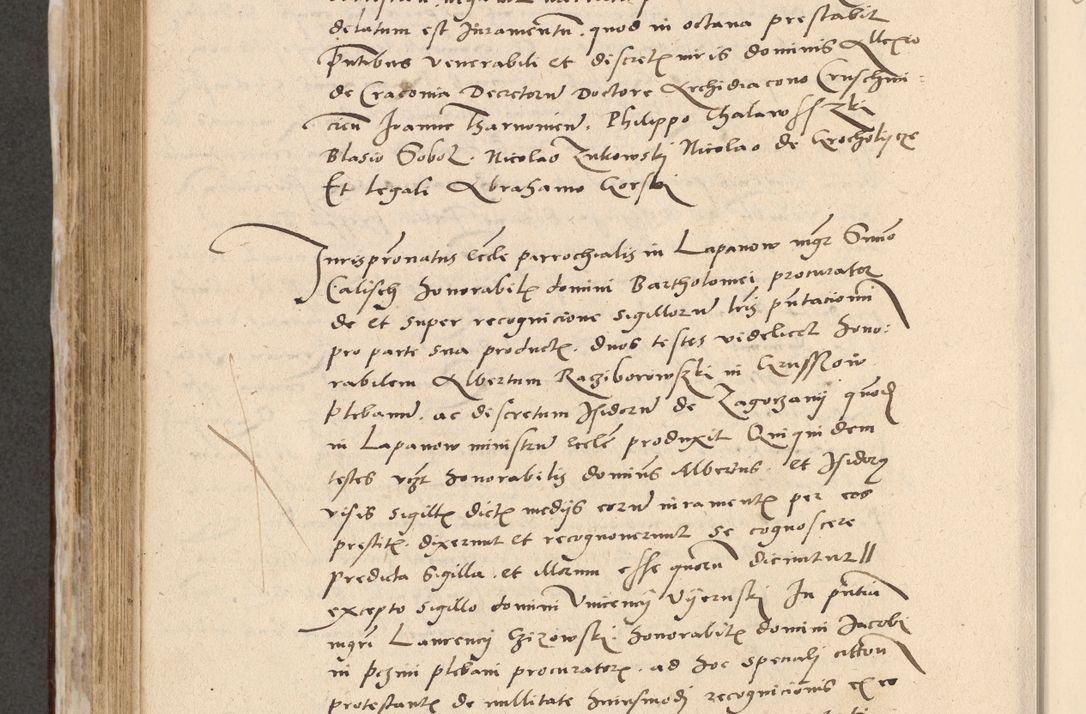 delatum est Juramentū. quod in octava prestabit
Pn̄tibus venerabili et discretꝭ viris dominis Allexio
de Cracovia Decretorū Doctore Archidiacono Cruschwi-
cien Joanne Tharnovien. Philippo Chalawsszki
Blasio Sobol. Nicolao Zukowski Nicolao de Grocholycze
Et legali Abrahamo Gorski
Jurispr̄onatus Eccl̄e parrochialis in Lapanow mgr̄ Simo
Calisch honorabilꝭ domini Bartholomei procurator
de et super recognicione sigillorū lr̄is pn̄tacioni
pro parte sua productꝭ. duos testes videlicet hono:
rabilem Albertum Raciborowszki in Grussow
Plebanū. ac discretum Isidorū de Zagorzany quō
in Lapanow ministrū Eccl̄e produxit Qui quidem
testes vcꝫt honorabilis dominus Albertus. et Isidorꝰ
visis sigillꝭ dictꝭ medijs eorū iuramentꝭ per eos
prestitꝭ. dixerunt et recognoverunt se cognoscere
predicta Sigilla. et illorum esse quorū dicuntur ||
excepto sigillo domini Vincency Vyeruski In pn̄tia
mgri Laurency Czizowski. honorabilꝭ domini Jacobi
in Pczini plebani procuratorꝭ. ad hoc specialj
protestantꝭ de nullitate huiusmodj recognicionis ex eo